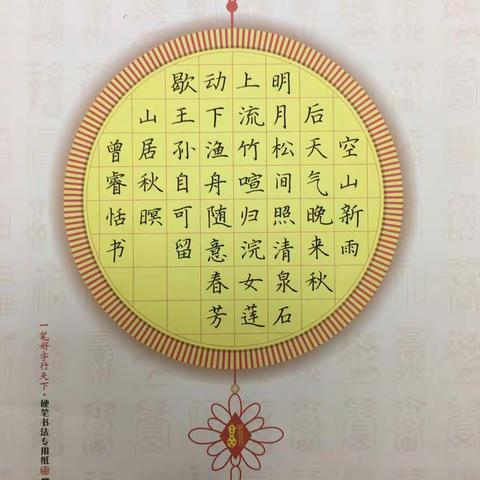 空山新雨
后天气晚来秋
明月松间照清泉石
上流竹喧归浣女莲
动下渔舟随意春芳
歇王孙自可留
山居秋暝
曾睿恬书
一笔好字行天下·硬笔书法专用纸